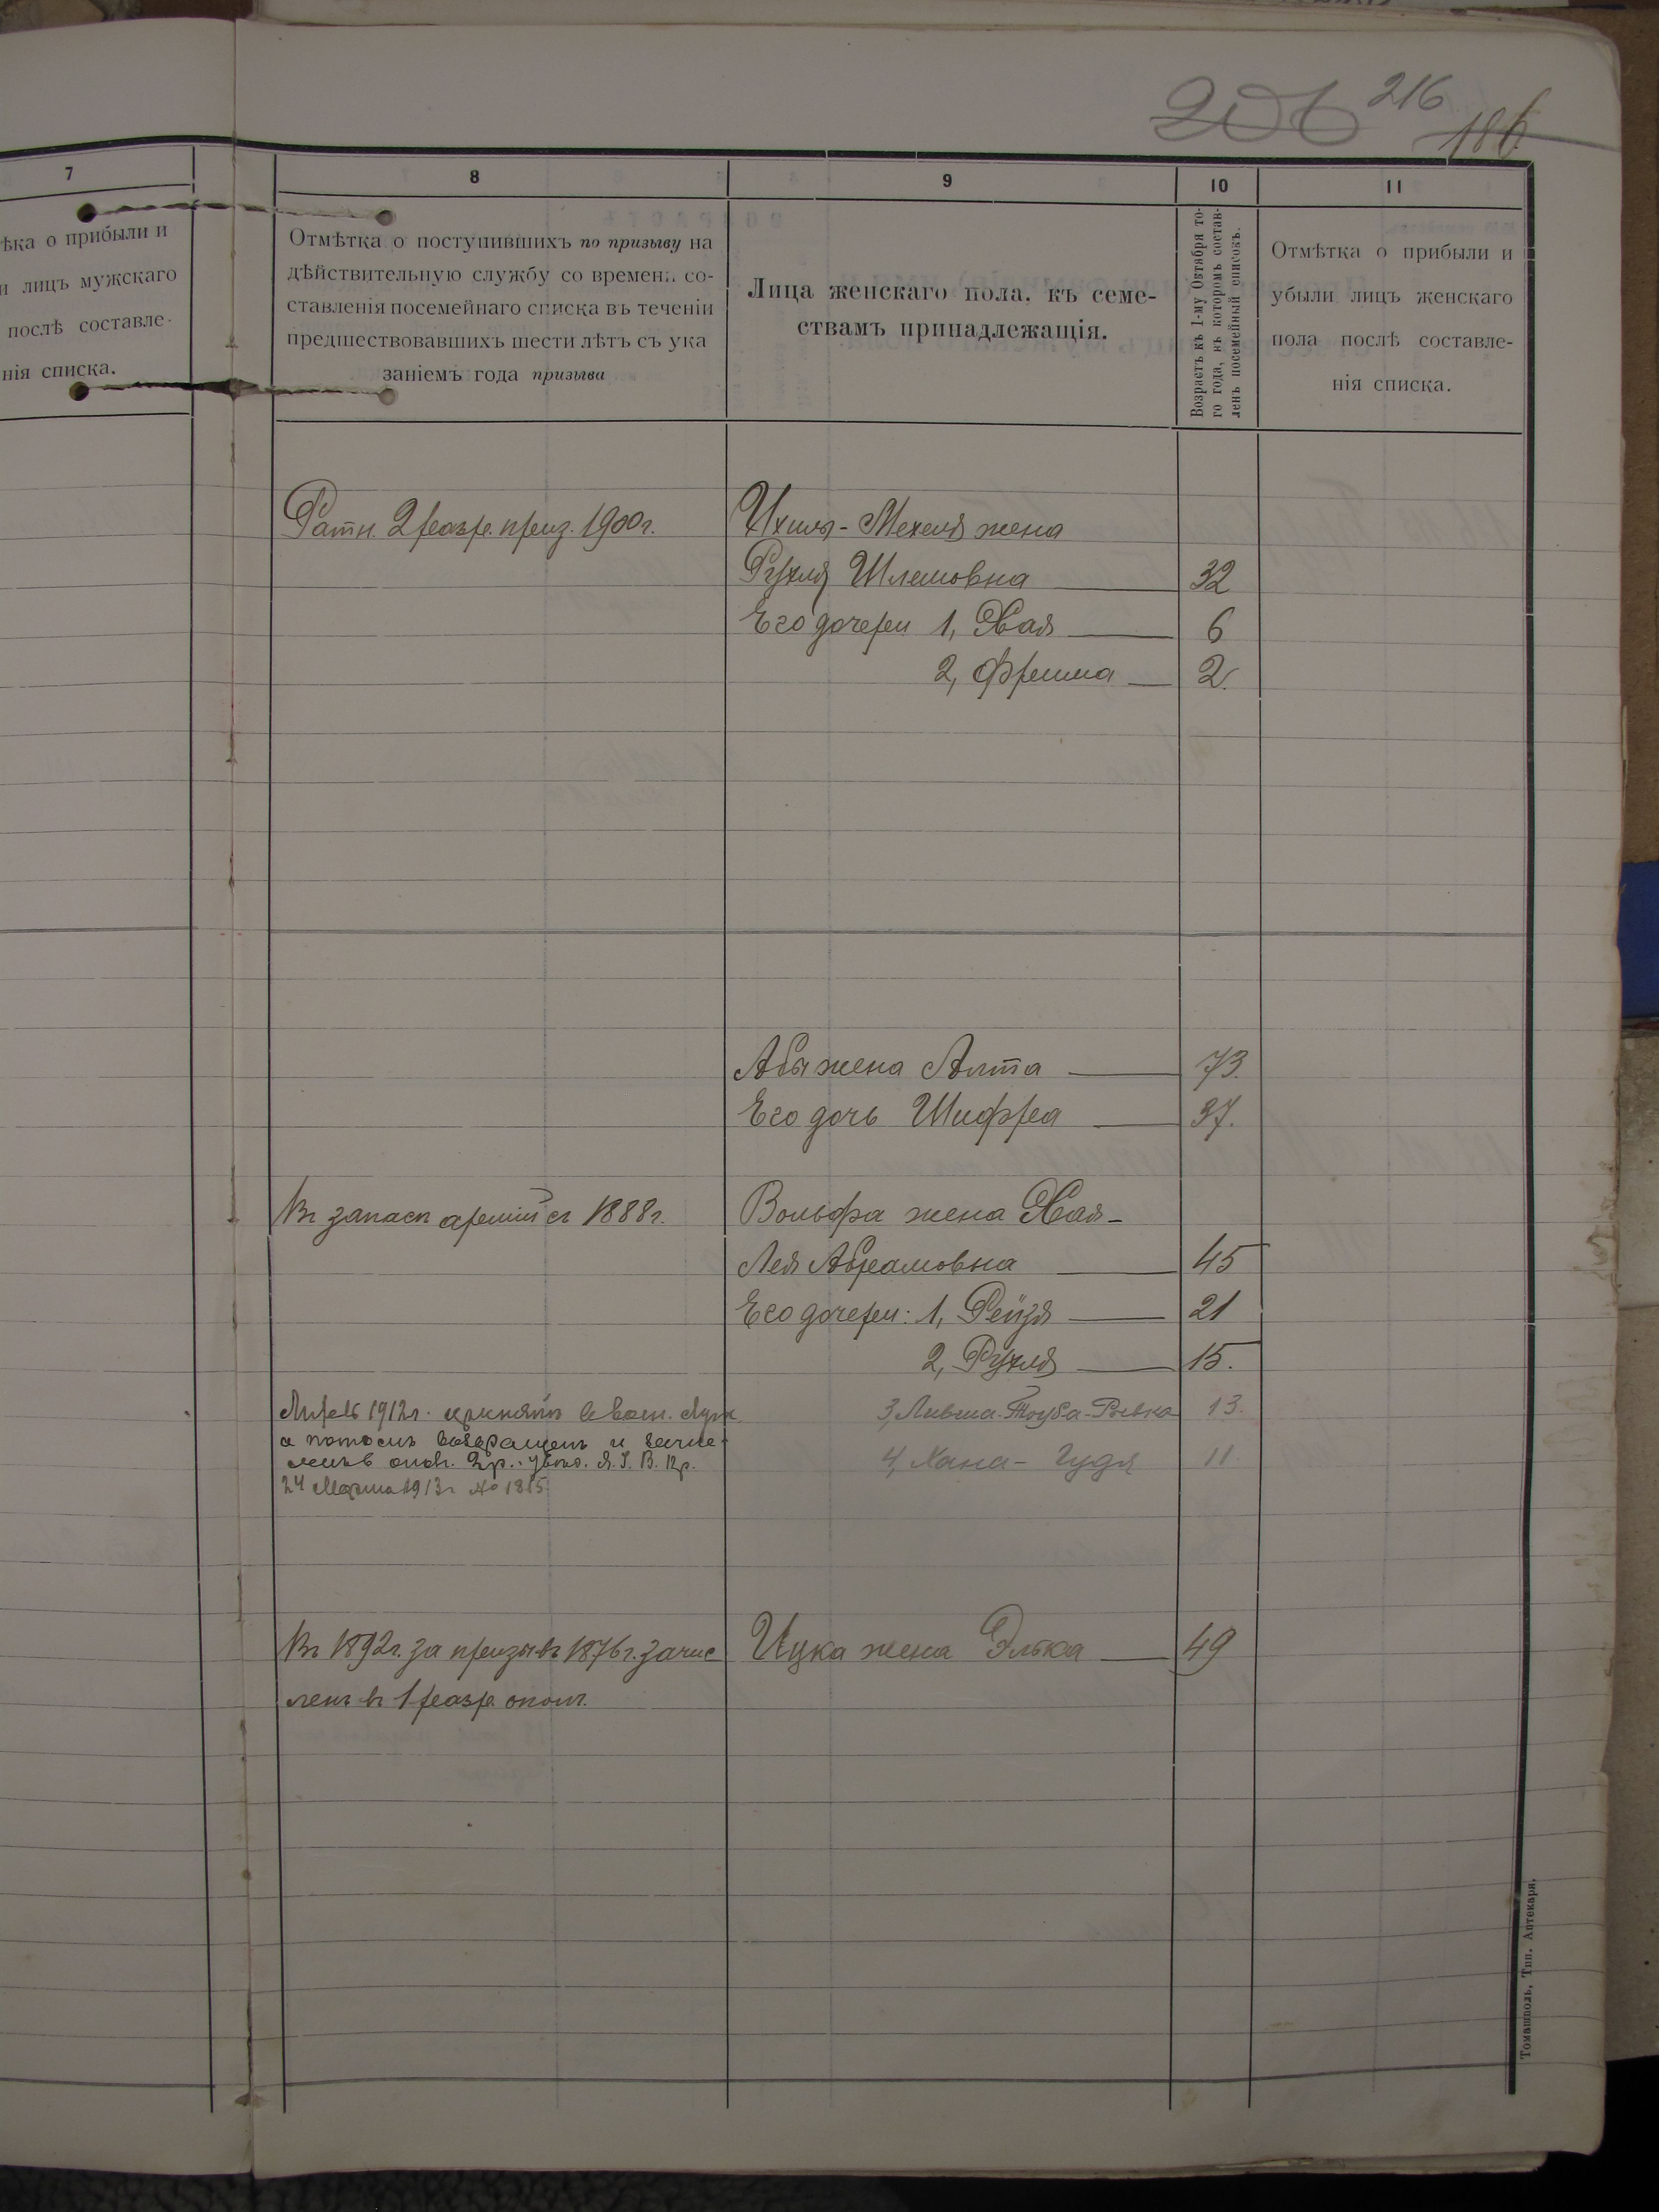 206 216
186
7
ѣка о прибыли и
и лицъ мужскаго
послѣ составле-
нія списка.
8
Отмѣтка о поступившихъ по призыву на
дѣйствительную службу со времени со-
ставленія посемейнаго списка въ теченіи
предшествовавшихъ шести лѣтъ съ ука
заніемъ года призыва
9
Лица женскаго пола, къ семе-
ствамъ принадлежащія.
10
Возрастъ къ 1-му Октября то-
го года, въ которомъ состав-
ленъ посемейный списокъ.
11
Отмѣтка о прибыли и
убыли лицъ женскаго
пола послѣ составле-
нія списка.
Ратн. 2 разр. приз. 1900 г.
Ихиля-Мехеля жена
Рухля Шлемовна 32
Его дочери 1, Хая 6
2, Фрейма 2.
Абы жена Алта 73.
Его дочь Шифра 37.
Въ запасѣ арміи съ 1888 г.
Вольфа жена Хая-
Лея Абрамовна 45
Его дочери: 1, Рейзя 21
2, Рухля 15.
1912 г. принятъ в воен.
а потомъ возвращенъ и зачис-
ленъ в опол. 2 р.
24 Марта 1913 г. № 1815.
3, Ливша-Тауба-Ривка 13.
4, Хана-Гудя 11
Въ 1892 г. за призывъ 1876 г. зачис
ленъ въ 1 разр. ополч.
Ицка жена Элька 49
Томашполь, Тип. Аптекаря.